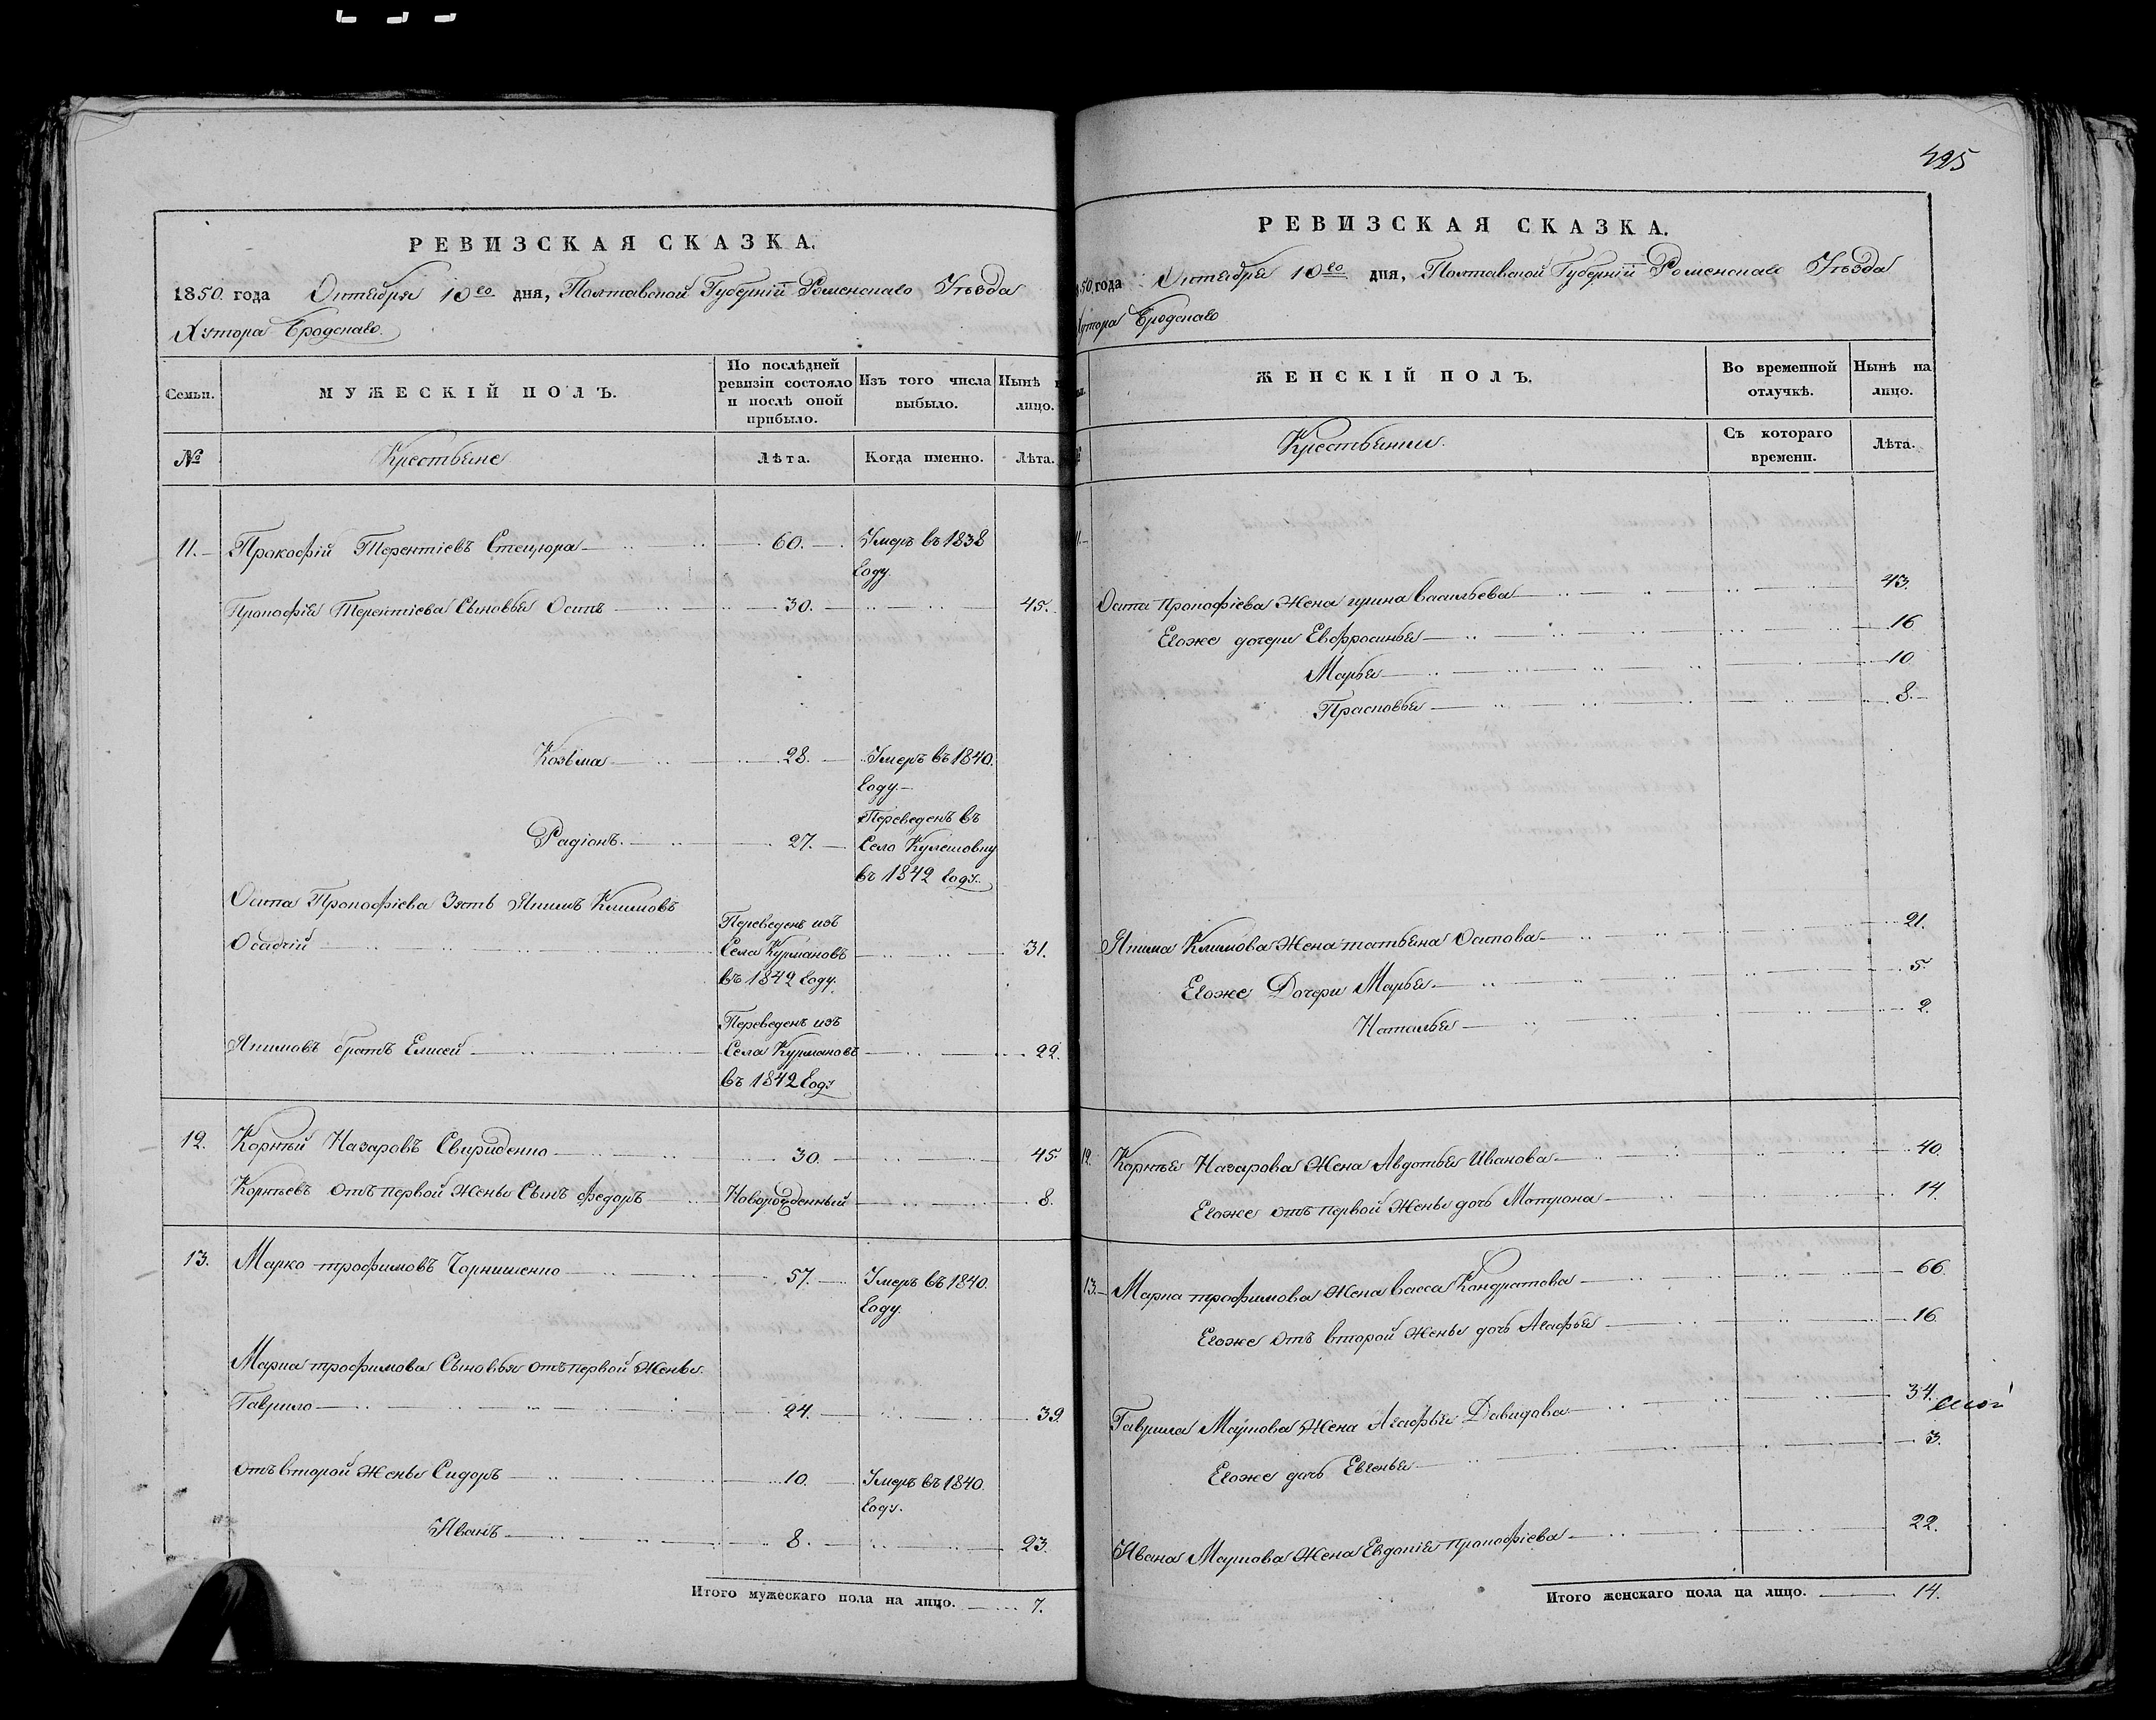 425
РЕВИЗСКАЯ СКАЗКА.
1850 года Октября 10го дня, Полтавской Губернiи Роменскаго Уѣзда
Хутора Бродскаго.
Семьи.
МУЖЕСКIЙ ПОЛЪ.
По послѣдней ревизiи состояло и послѣ оной прибыло.
Изъ того числа выбыло.
Нынѣ
лицо.
№
Крестьяне
Лѣта.
Когда именно.
Лѣта.
11. Прокофiй Терентiевъ Стецюра 60. Умеръ въ 1838
году.
Прокофiя Терентiева Сыновья Осипъ 30. 45.
Козьма 28. Умеръ въ 1840.
году.
Радiонъ. 27. Переведенъ въ
Село Кулешовку
въ 1842 году.
Осипа Прокофiева Зять Якимъ Климовъ
Осадчiй Переведенъ изъ
Села Курмановъ 31.
въ 1842 году.
Якимовъ братъ Елисей Переведенъ изъ
Села Курмановъ 22.
въ 1842 году
12. Корнѣй Назаровъ Свириденко 30. 45.
Корнѣевъ отъ первой Жены Сынъ Федоръ Новорожденный 8.
13. Марко трофимовъ Чорнишенко 57. Умеръ въ 1840.
году.
Марка трофимова Сыновья отъ первой Жены
Гаврило 24. 39.
отъ второй Жены Сидоръ 10. Умеръ въ 1840.
году.
Иванъ 8. 23.
Итого мужескаго пола на лицо. 7.
РЕВИЗСКАЯ СКАЗКА.
50 года Октября 10го дня, Полтавской Губернiи Роменскаго Уѣзда
Хутора Бродскаго
ЖЕНСКIЙ ПОЛЪ.
Во временной отлучкѣ.
Нынѣ на лицо.
Крестьянки.
Съ котораго времени.
Лѣта.
Осипа Прокофiева Жена Васильева 43.
Егоже дочери Евфросинья 16
Марья 10
Прасковья 8.
Якима Климова Жена татьяна Осипова 21.
Егоже Дочери Марья 5.
Наталья 2.
12. Корнѣя Назарова Жена Авдотья Иванова 40.
Егоже отъ первой Жены дочь Матрона 14.
13. Марка трофимова Жена васса Кондратова 66.
Егоже отъ второй Жены дочь Агафья 16.
Гаврила Маркова Жена Агафья Давидова 34.
Егоже дочь Евгенья 3.
Ивана Маркова Жена Евдокiя Прокофiева 22.
Итого женскаго пола на лицо. 14.